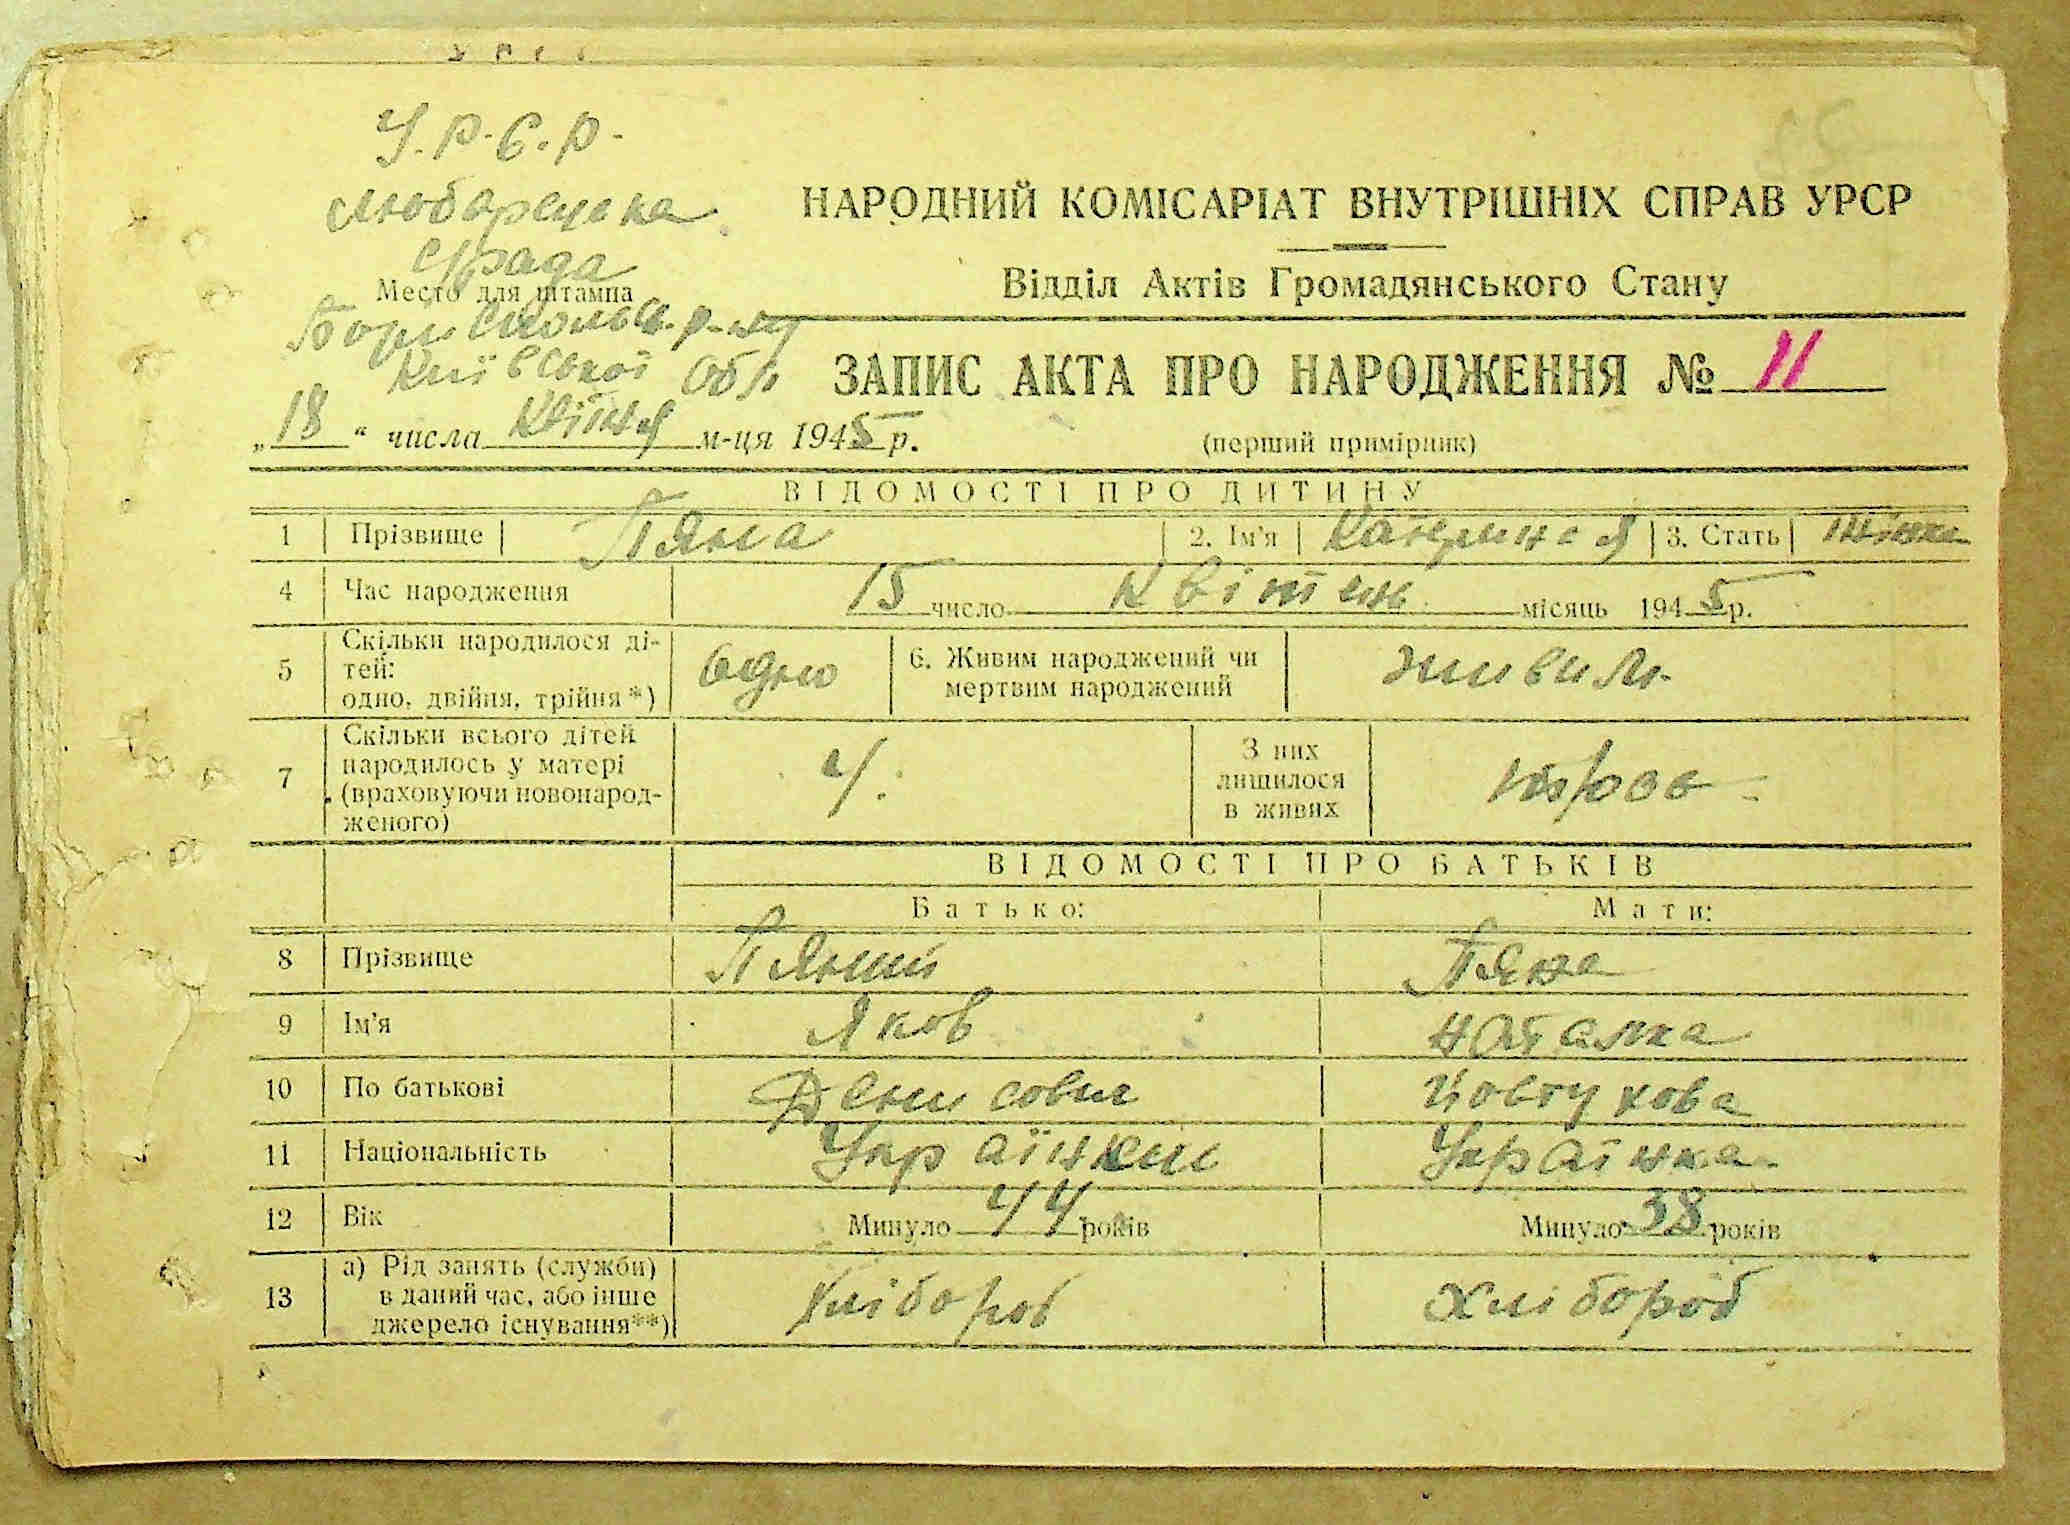 У.Р.Є.Р.
Любарецька
с/рада
Место для штампа
Бориспольс. р-ну
Київської обл
НАРОДНИЙ КОМІСАРІАТ ВНУТРІШНІХ СПРАВ УРСР
Відділ Актів Громадянського Стану
ЗАПИС АКТА ПРО НАРОДЖЕННЯ № 11
„18“ числа Квітня м-ця 1945 р.
(перший примірник)
ВІДОМОСТІ ПРО ДИТИНУ
1 Прізвище Пяна 2. Ім'я Катерина 3. Стать жінка
4 Час народження 15 число квітень місяць 1945 р.
5 Скільки народилося ді-
тей:
одно, двійня, трійня *) одно
6. Живим народжений чи
мертвим народжений живим
7 Скільки всього дітей
народилось у матері
(враховуючи новонарод-
женого) 4.
З них
лишилося
в живих троє
ВІДОМОСТІ ПРО БАТЬКІВ
Батько: Мати:
8 Прізвище Пяний Пяна
9 Ім'я Яков Наталка
10 По батькові Денисович Йовтухова
11 Національність Українець Українка
12 Вік Минуло 44 років Минуло 38 років
13 а) Рід занять (служби)
в даний час, або інше
джерело існування**) хлібороб хлібороб